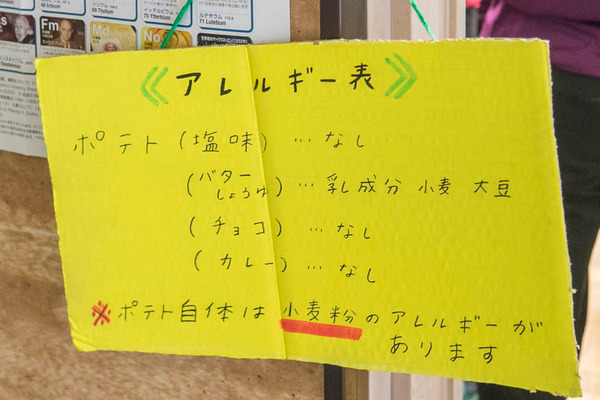 68 Erbium
69 Thulium
イッテルビウム
70 Ytterbium
ルテチウム
71 Lutetium
Fm
Md
No
《アレルギー表》
ポテト(塩味)…なし
(バターしょうゆ)…乳成分 小麦 大豆
(チョコ)…なし
(カレー)…なし
※ポテト自体は小麦粉のアレルギーが
あります